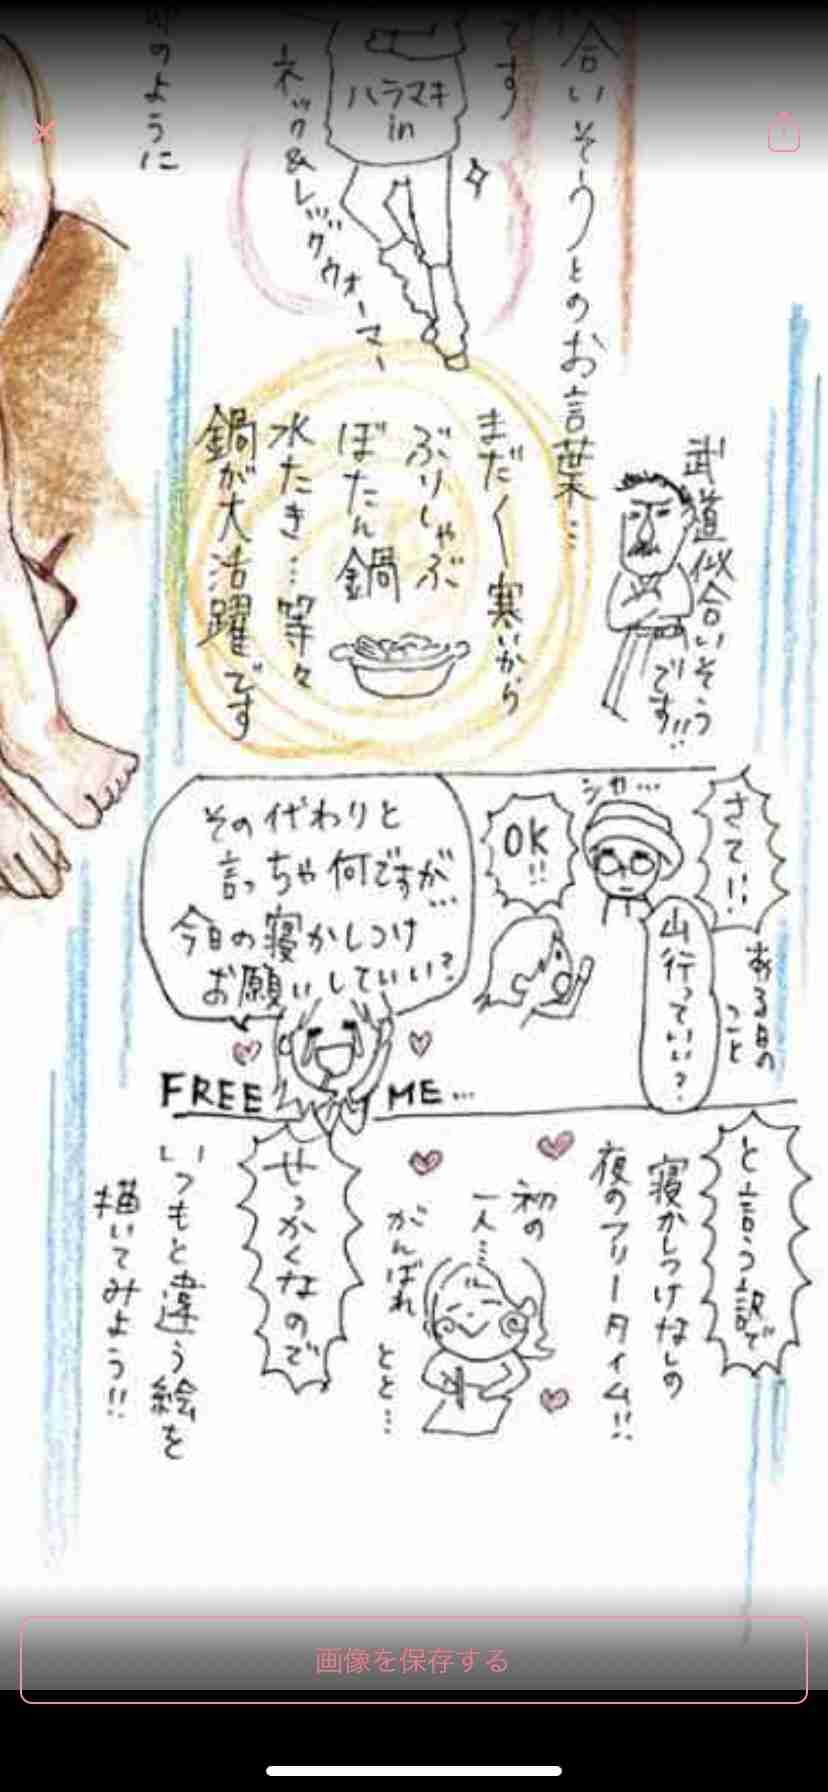 合いそうとのお言葉…
です
ハラマキ
in
ネック&レッグウォーマー
のように
武道似合いそう
です!!
まだまだ寒いから
ぶりしゃぶ
ぼたん鍋
水たき…等々
鍋が大活躍です
さて!!
ある日の
こと
山行っていい?
シカ…
OK
!!
その代わりと
言っちゃ何ですが…
今日の寝かしつけ
お願いしていい?
FREE ME…
と言う訳で
寝かしつけなしの
夜のフリータイム!!
初の
一人…
がんばれ
とと…
せっかくなので
いつもと違う絵を
描いてみよう!!
画像を保存する